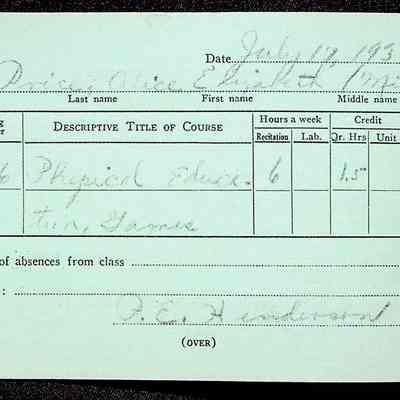 Date July 17, 193
Price, Alice Elizabeth (Mi
Last name First name Middle name
g Descriptive Title of Course Hours a week Credit
er Recitation Lab. Qr. Hrs Unit
6 Physical Educa- 6 1.5
tion, Games
of absences from class
:
P. E. Henderson
(OVER)